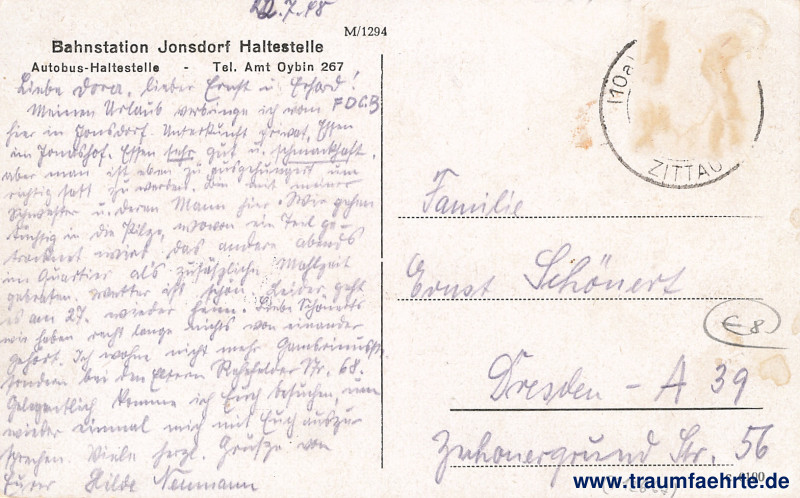 22.7.48
M/1294
Bahnstation Jonsdorf Haltestelle
Autobus-Haltestelle - Tel. Amt Oybin 267
Liebe Dora, lieber Ernst u. Erhard!
Meinen Urlaub verbringe ich vom FDGB
hier in Jonsdorf. Unterkunft privat, Essen
im Jonashof. Essen sehr gut u. schmackhaft,
aber man ist eben zu ausgehungert um
richtig satt zu werden. Bin mit meiner
Schwester u. deren Mann hier. Wir gehen
tüchtig in die Pilze, wovon ein Teil ge-
trocknet wird, das andere abends
im Quartier als zusätzliche Mahlzeit
gebraten. Wetter ist schön. Leider geht
es am 27. wieder heim. Liebe Schönerts
wir haben recht lange nichts von einander
gehört. Ich wohne nicht mehr Gambrinusstr.
sondern bei den Eltern Rehefelder Str. 68.
Gelegentlich komme ich Euch besuchen, um
wieder einmal mich mit Euch auszu-
sprechen. Viele herzl. Grüsze von
Eurer Hilde Neumann
(10a)
ZITTAU
Familie
Ernst Schönert
E 8
Dresden - A 39
Zschonergrund Str. 56
www.traumfaehrte.de